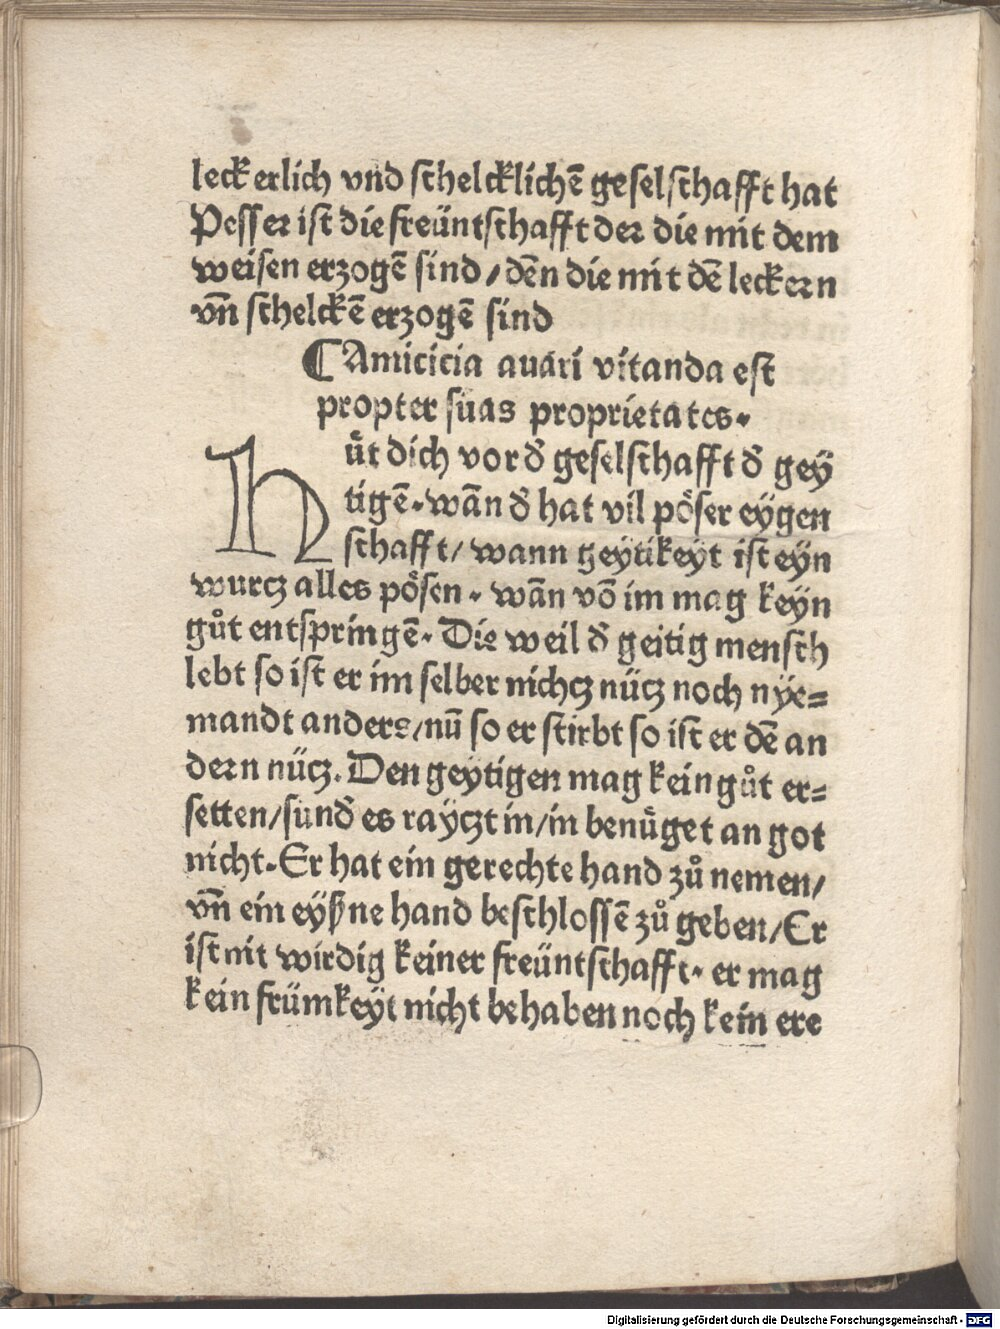 leckerlich vnd schelcklichē geselschafft hat
Pesser ist die freüntschafft der die mit dem
weisen erzogē sind / dēn die mit dē leckern
vn̄ schelckē erzogē sind
⸿Amicicia auari vitanda est
propter suas proprietates.
Hüt dich vor d̄ geselschafft d̄ gey
tigē. wān d̄ hat vil pöser eÿgen
schafft / wann geÿtikeyt ist eÿn
wurcz alles pösen. wān vō im mag keÿn
gůt entspringē. Die weil d̄ geitig mensch
lebt so ist er im selber nichcz nücz noch nÿe=
mandt anders / nū so er stirbt so ist er dē an
dern nücz. Den geytigen mag kein gůt er=
setten / sund̄ es raÿczt in / in benüget an got
nicht. Er hat ein gerechte hand zů nemen /
vn̄ ein eÿßne hand beschlossē zů geben / Er
ist nit wirdig keiner freüntschafft. er mag
kein frümkeÿt nicht behaben noch kein ere
Digitalisierung gefördert durch die Deutsche Forschungsgemeinschaft - DFG